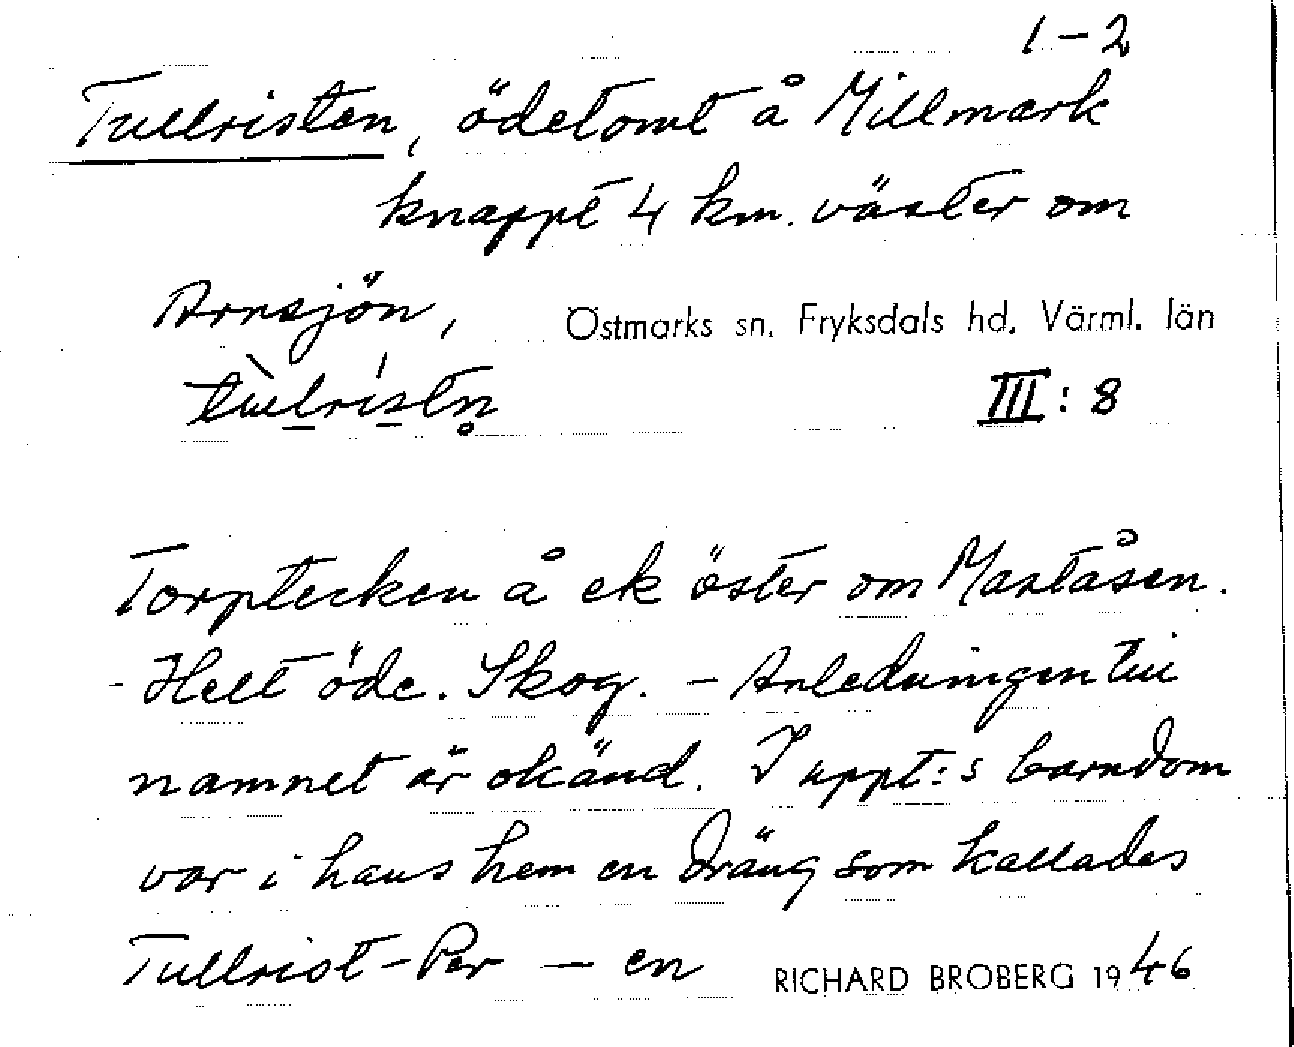 1-2
Tullristen, ödetomt å Millmark
knappt 4 km. väster om
Arnsjön, Östmarks sn. Fryksdals hd. Värml. län
III: 8
Torptecken å ek öster om Maståsen.
- Helt öde. Skog. - Anledningen till
namnet är okänd. I uppt:s barndom
var i hans hem en dräng som kallades
Tullrist-Per - en RICHARD BROBERG 1946